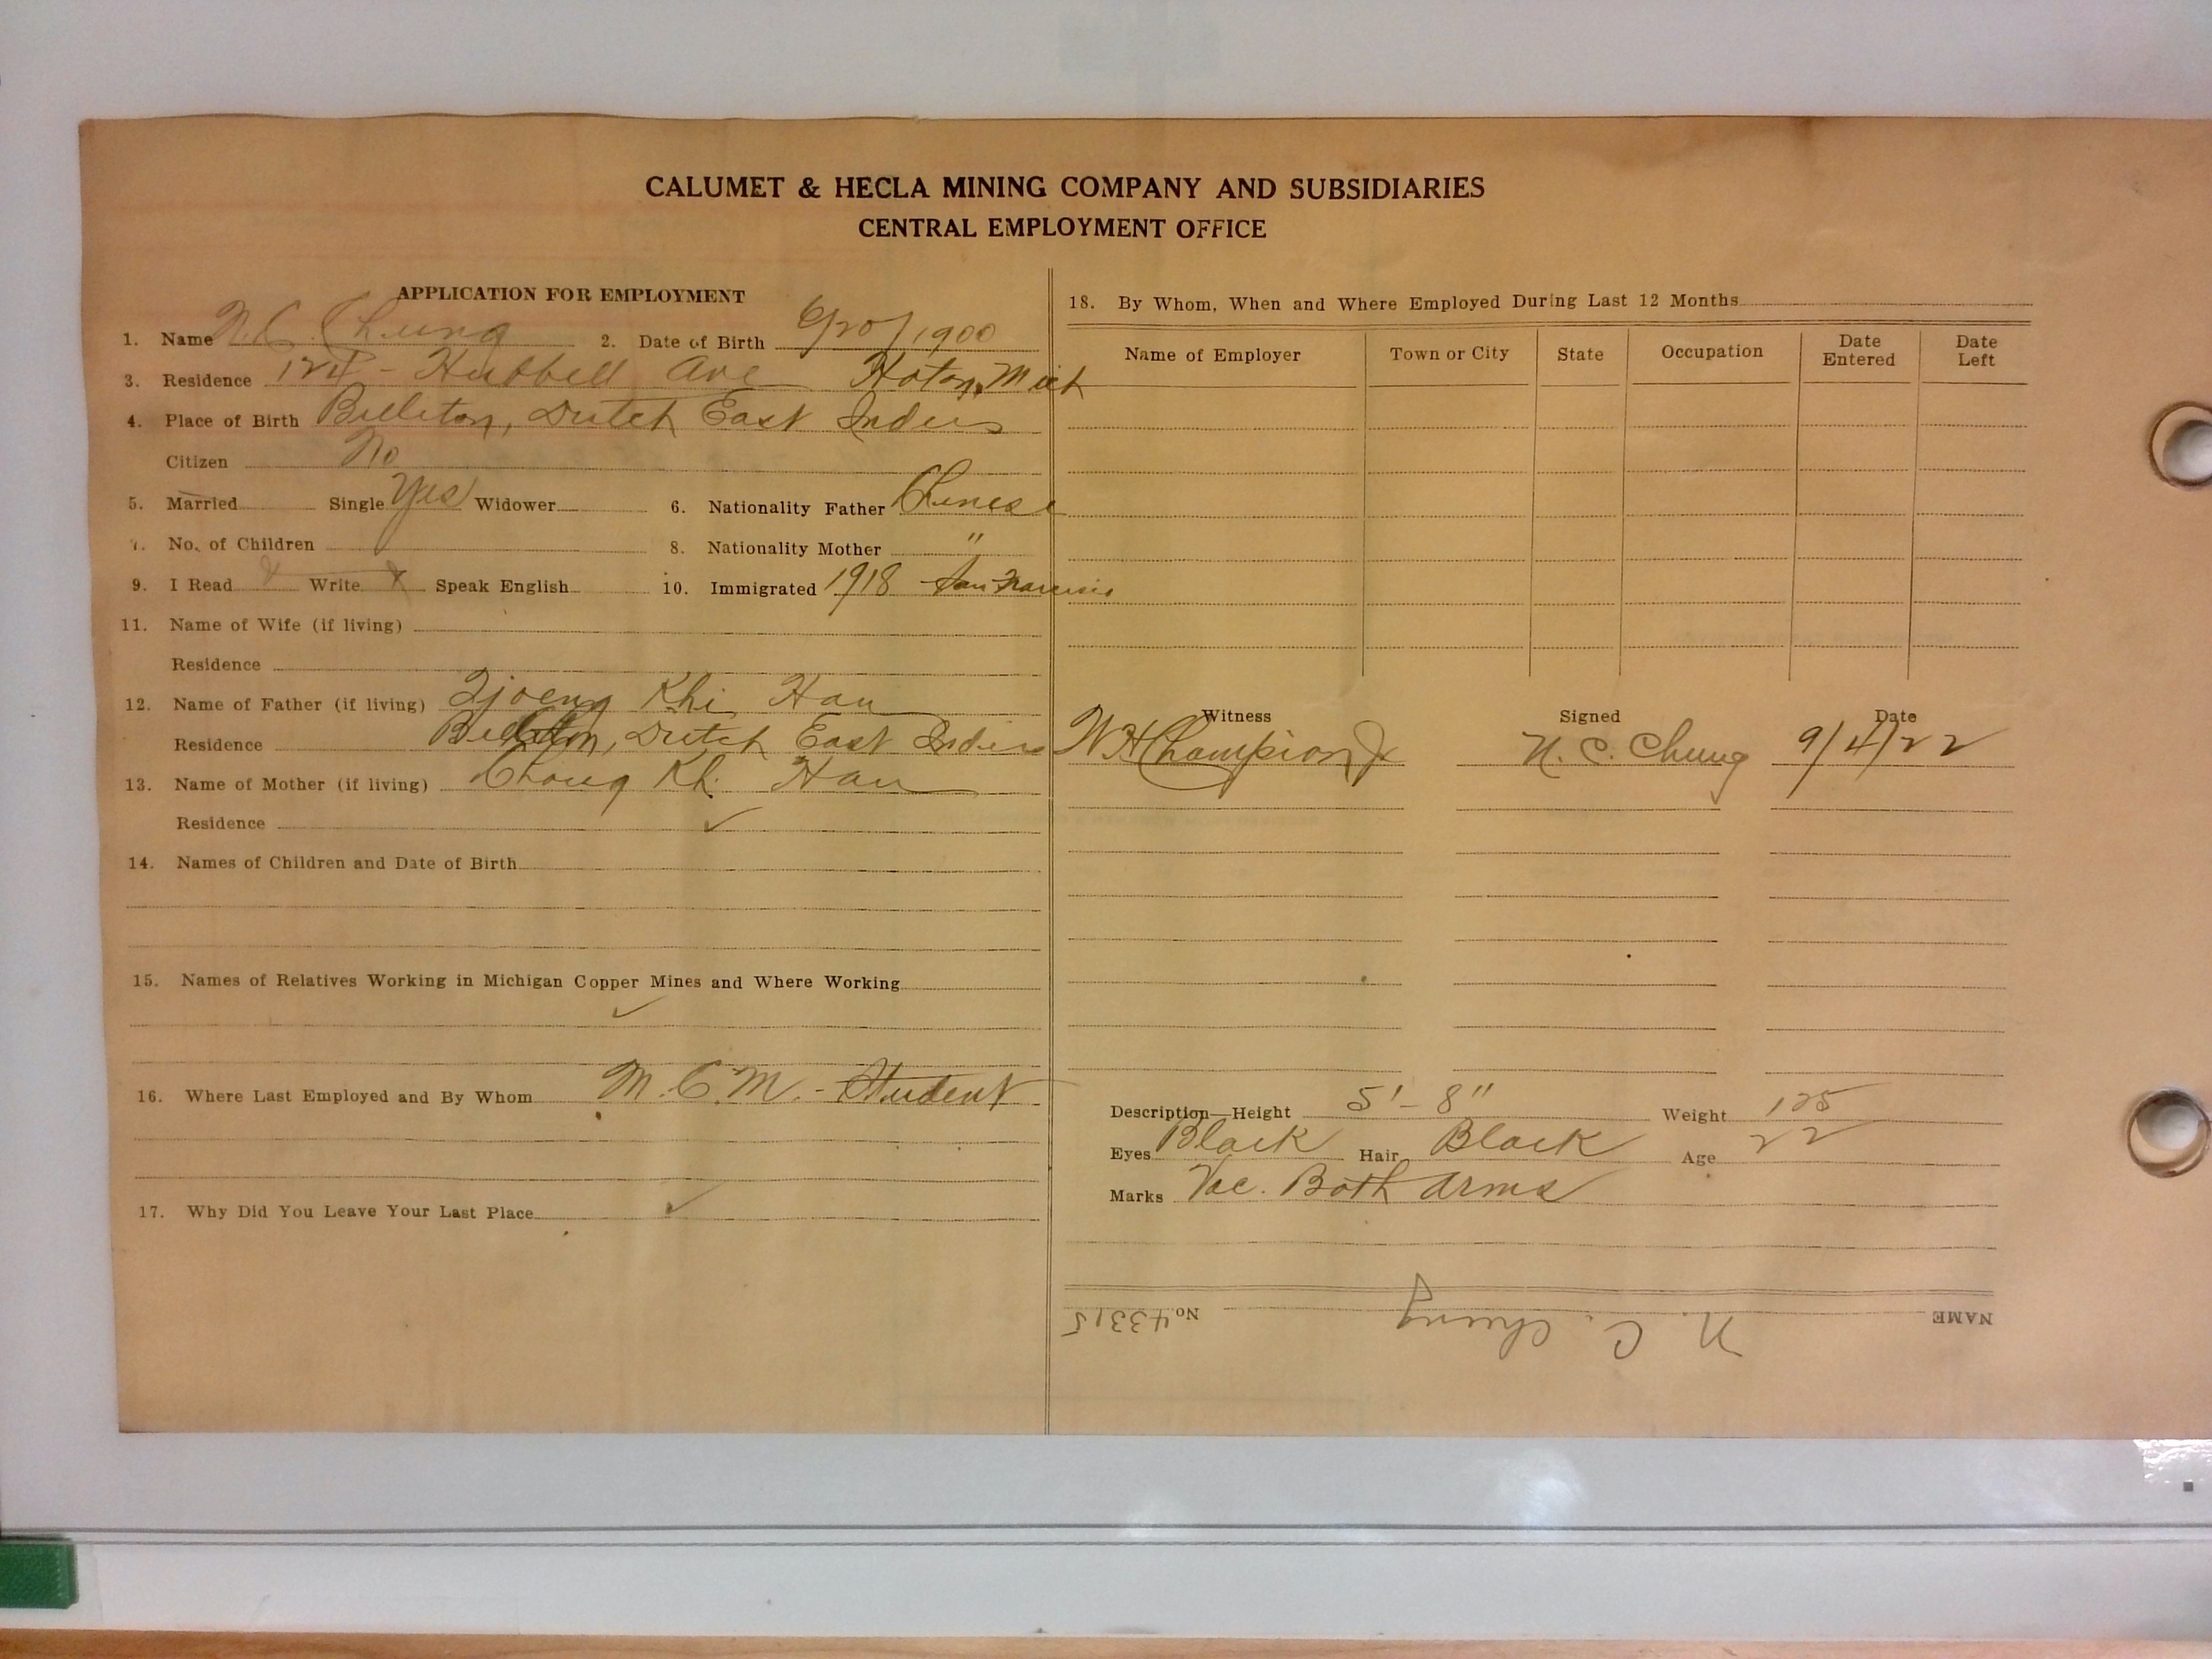 CALUMET & HECLA MINING COMPANY AND SUBSIDIARIES
CENTRAL EMPLOYMENT OFFICE
APPLICATION FOR EMPLOYMENT
1. Name N.C. Chung 2. Date of Birth 6/20/1900
3. Residence Hubbell Ave Hoton, Mich
4. Place of Birth Billiton, Dutch East Indies
Citizen No
5. Married Single Yes Widower 6. Nationality Father Chinese
7. No. of Children 8. Nationality Mother "
9. I Read X Write X Speak English 10. Immigrated 1918 San Francisco
11. Name of Wife (if living)
Residence
12. Name of Father (if living) Tjoeng Khi Hau
Residence Billiton, Dutch East Indies
13. Name of Mother (if living) Chong Kh. Hau
Residence ✓
14. Names of Children and Date of Birth
15. Names of Relatives Working in Michigan Copper Mines and Where Working
✓
16. Where Last Employed and By Whom M.C.M. - Student
17. Why Did You Leave Your Last Place ✓
18. By Whom, When and Where Employed During Last 12 Months
Name of Employer Town or City State Occupation Date Entered Date Left
Witness Signed Date
W H Champion Jr N. C. Chung 9/4/22
Description—Height 5'-8" Weight 125
Eyes Black Hair Black Age 22
Marks Vac. Both Arms
NAME N. C. Chung No. 43315